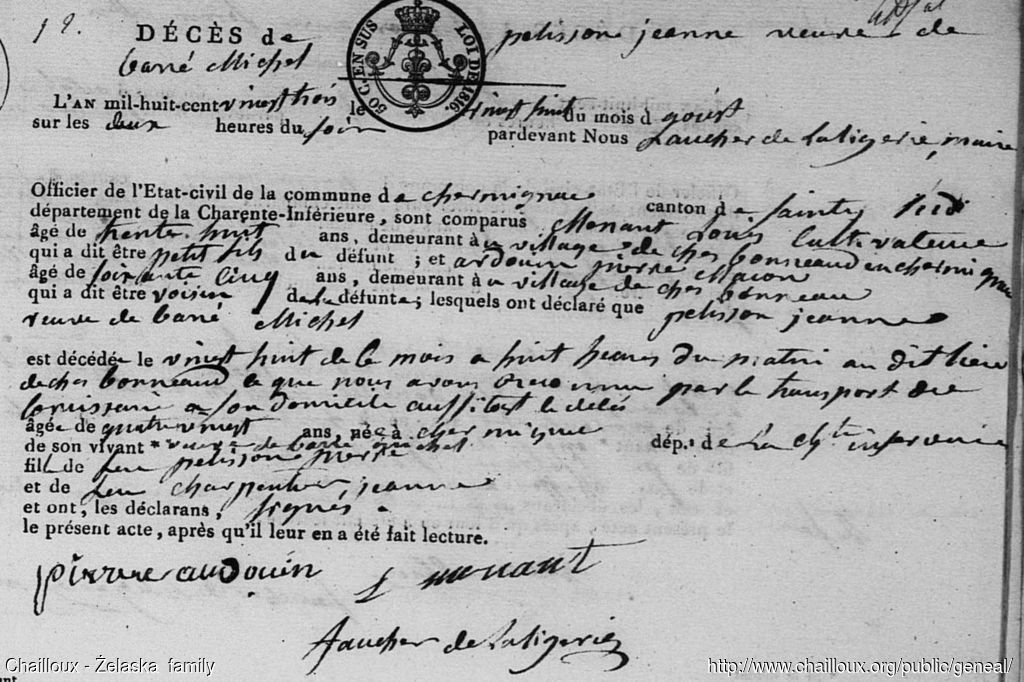 12.
DÉCÈS de pelisson jeanne veuve de
barré Michel
50 C. EN SUS LOI DE 1816.
L'AN mil-huit-cent vingt trois le vingt huit du mois d aoust
sur les deux heures du soir pardevant Nous faucher de Laligerie, maire
Officier de l'Etat-civil de la commune de chermignac canton de Saintes
département de la Charente-Inférieure, sont comparus Menant Louis Cultivateur
âgé de trente huit ans, demeurant à u village de ches bonneaud en chermignac
qui a dit être petit fils du défunt ; et ardouin pierre Macon
âgé de soixante cinq ans, demeurant à u village de ches bonneau
qui a dit être voisin de la défunte; lesquels ont déclaré que pelisson jeanne
veuve de barré Michel
est décédée le vingt huit de ce mois a huit heures du matin au dit lieu
de ches bonneaud ce que nous avons reconnu par le transport de
a son domicile aussitost le décés
âgée de quatre vingt ans, née à chermignac
de son vivant veuve de barré michel dép.t de La Ch.te inferieure
fill de feu pelisson pierre
et de feu charpentier, jeanne
et ont, les déclarans, signés.
le présent acte, après qu'il leur en a été fait lecture.
pierre audouin L menant
faucher de Laligerie
Chailloux - Żelaska family http://www.chailloux.org/public/geneal/